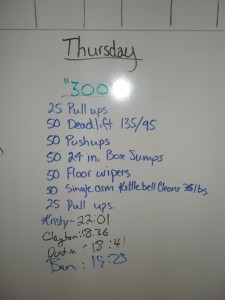 Thursday
"300"
25 Pull ups
50 Deadlift 135/95
50 Pushups
50 24 in. Box Jumps
50 Floor wipers
50 Single arm Kettlebell Cleans 36lbs
25 Pull ups
Kristy - 22:01
Clayton: 18:36
Dustin: 18:41
Ben: 19:23